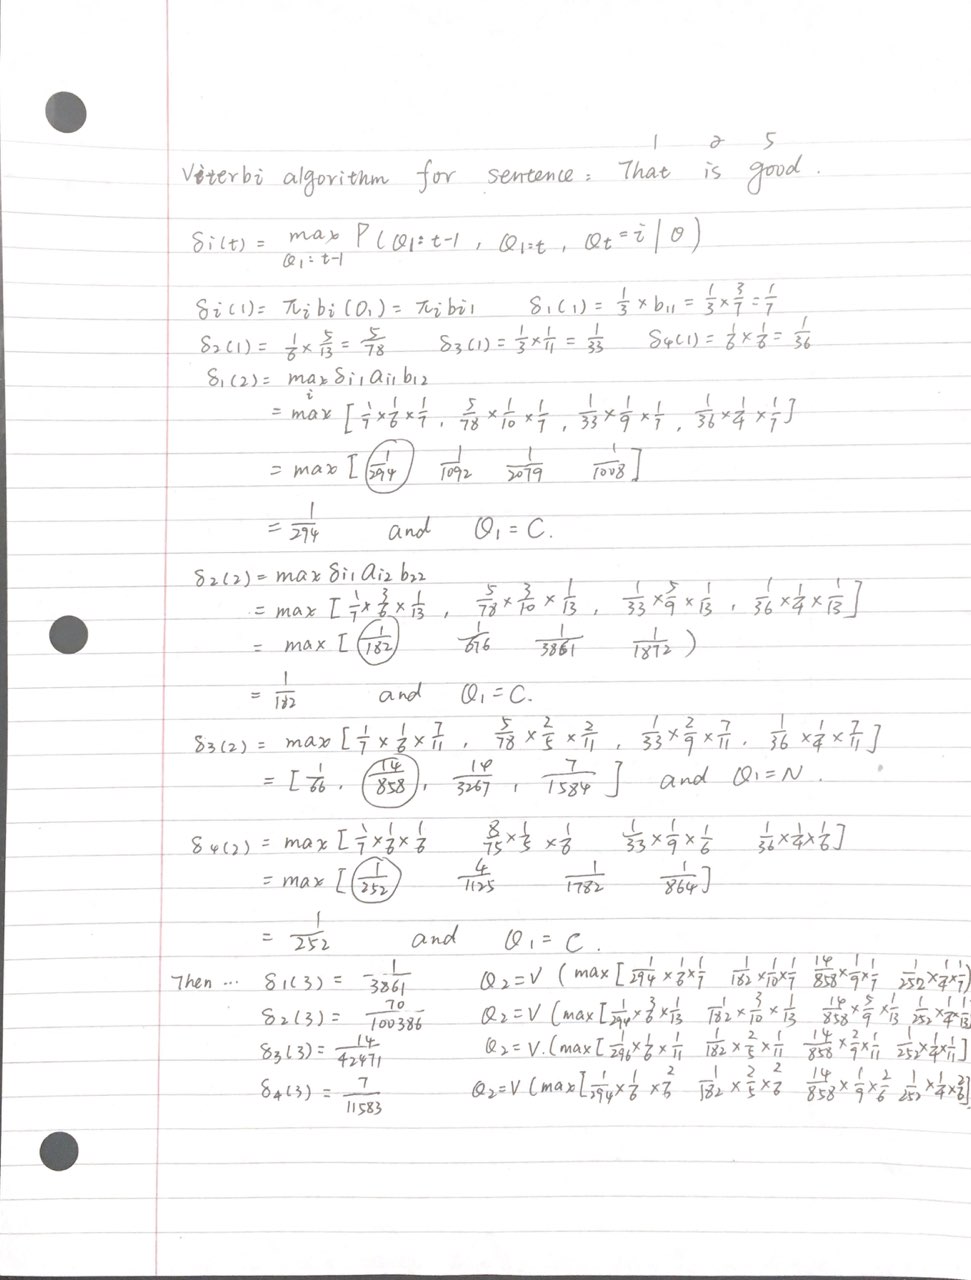 1 2 5
Viterbi algorithm for sentence: That is good.
δi(t) = max P(Q1:t-1, Q1:t, Qt=i|O)
Q1:t-1
δi(1) = πi bi(O1) = πi bi1 δ1(1) = 1/3 × b11 = 1/3 × 3/7 = 1/7
δ2(1) = 1/6 × 5/13 = 5/78 δ3(1) = 1/3 × 1/11 = 1/33 δ4(1) = 1/6 × 1/6 = 1/36
δ1(2) = max δi1 ai1 b12
i
= max [1/7 × 1/6 × 1/7, 5/78 × 1/10 × 1/7, 1/33 × 1/9 × 1/7, 1/36 × 1/4 × 1/7]
= max [1/294 1/1092 1/2079 1/1008]
= 1/294 and Q1 = C.
δ2(2) = max δi1 ai2 b22
= max [1/7 × 3/6 × 1/13, 5/78 × 3/10 × 1/13, 1/33 × 5/9 × 1/13, 1/36 × 1/4 × 1/13]
= max [1/182 1/676 1/3861 1/1872)
= 1/182 and Q1 = C.
δ3(2) = max [1/7 × 1/6 × 7/11, 5/78 × 2/5 × 2/11, 1/33 × 2/9 × 7/11, 1/36 × 1/4 × 7/11]
= [1/66, 14/858, 14/3267, 7/1584] and Q1 = N.
δ4(2) = max [1/7 × 1/6 × 1/6 8/75 × 1/5 × 1/6 1/33 × 1/9 × 1/6 1/36 × 1/4 × 1/6]
= max [1/252 4/1125 1/1782 1/864]
= 1/252 and Q1 = C.
Then ... δ1(3) = 1/3861 Q2 = V (max [1/294 × 1/6 × 1/7 1/182 × 1/10 × 1/7 14/858 × 1/9 × 1/7 1/252 × 1/4 × 1/7)
δ2(3) = 70/100386 Q2 = V (max [1/294 × 3/6 × 1/13 1/182 × 3/10 × 1/13 14/858 × 5/9 × 1/13 1/252 × 1/4 × 1/13
δ3(3) = 14/42471 Q2 = V. (max [1/296 × 1/6 × 1/11 1/182 × 2/5 × 1/11 14/858 × 2/9 × 1/11 1/252 × 1/4 × 1/11]
δ4(3) = 7/11583 Q2 = V (max [1/294 × 1/6 × 2/6 1/182 × 2/5 × 2/6 14/858 × 1/9 × 2/6 1/252 × 1/4 × 2/6]